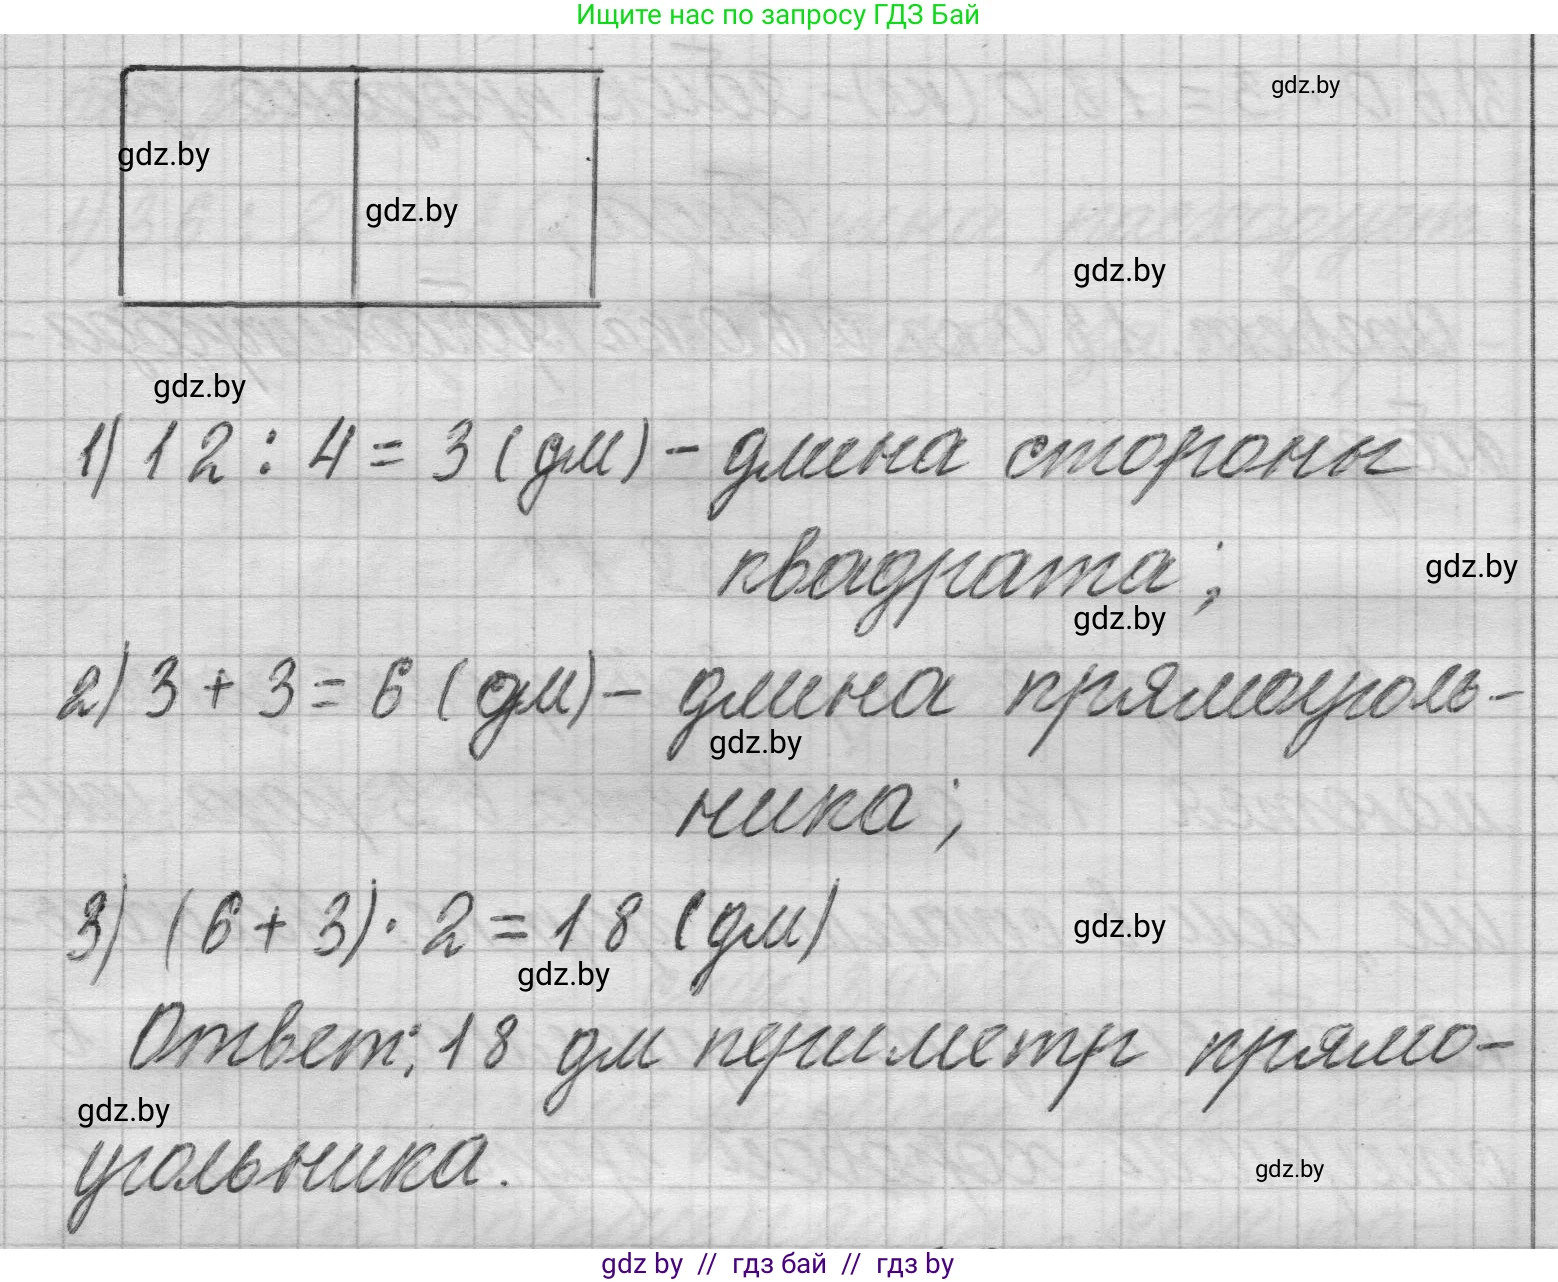 Ищите нас по запросу ГДЗ Бай
gdz.by
gdz.by
gdz.by
gdz.by
gdz.by
1) 12 : 4 = 3 (дм) - длина стороны
квадрата;
gdz.by
gdz.by
2) 3 + 3 = 6 (дм) - длина прямоуголь-
gdz.by
ника;
3) (6 + 3) · 2 = 18 (дм)
gdz.by
gdz.by
Ответ: 18 дм периметр прямо-
gdz.by
угольника.
gdz.by
gdz by // гдз бай // гдз by